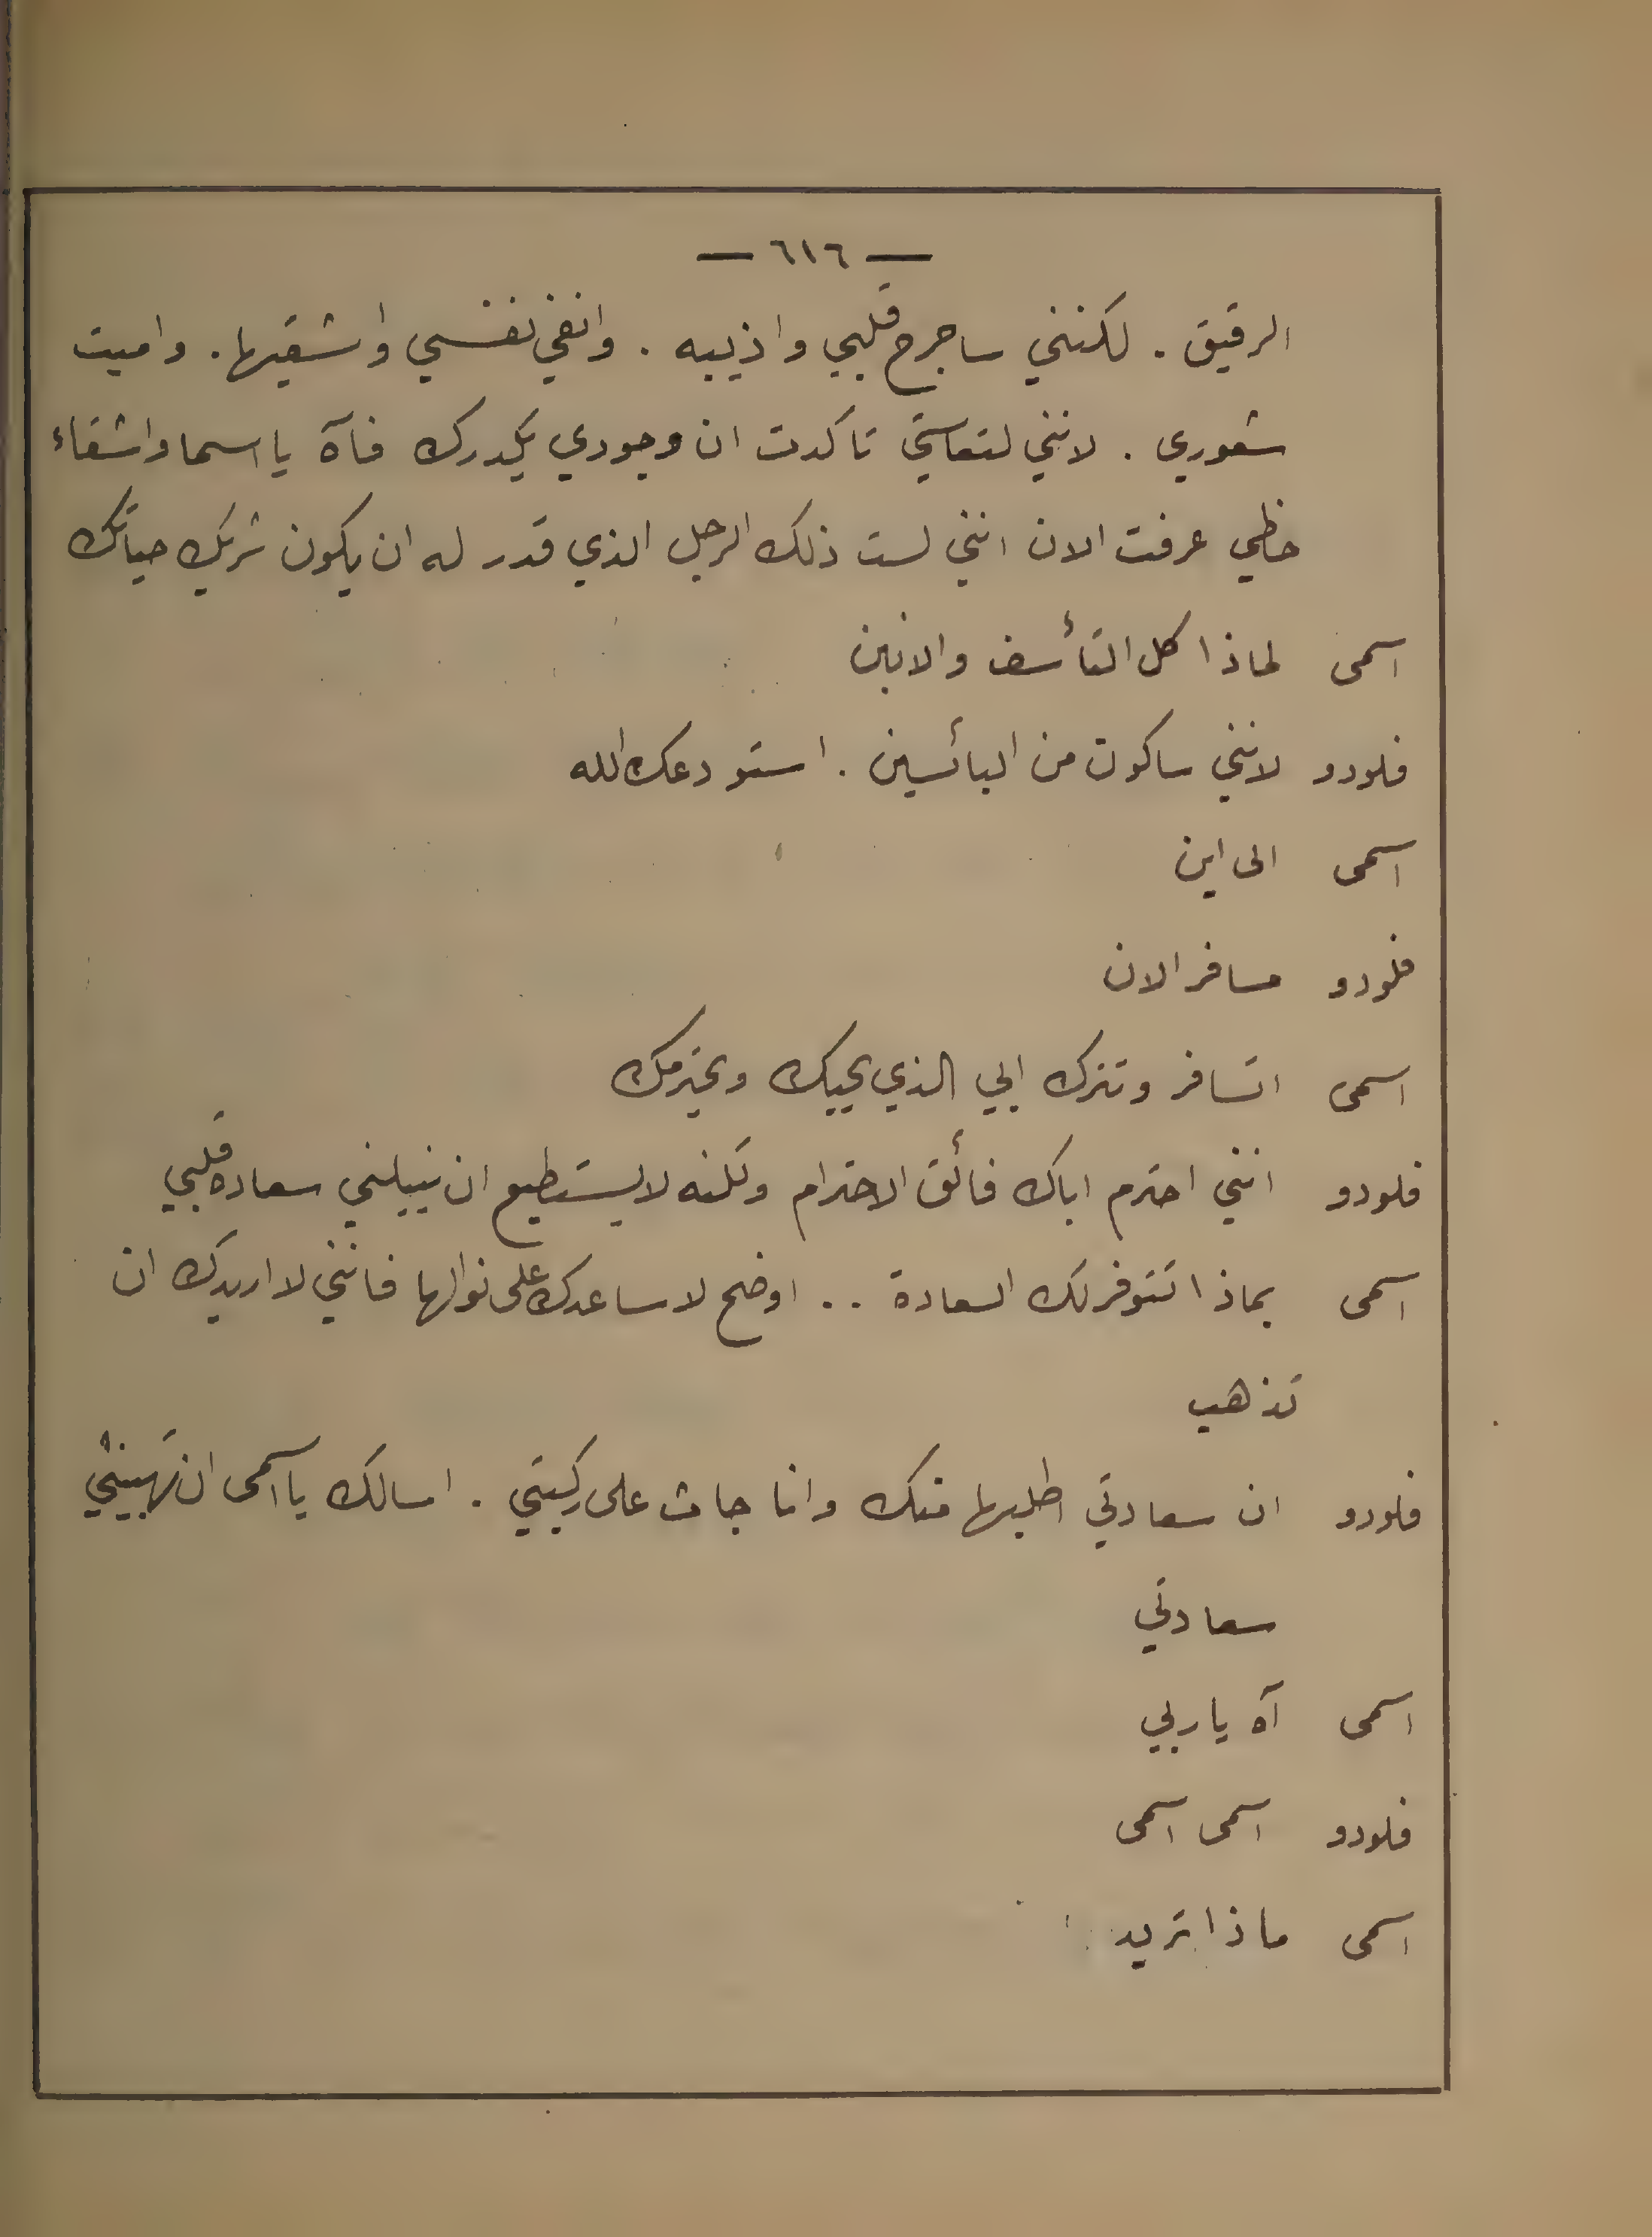 — ٦١٦ —
الرقيق . لكنني ساجرح قلبي واذيبه . وانفي نفسي واشقيها . واميت
شعوري . لانني لتعاستي تاكدت ان وجودي يكدرك فآه يا اسما واشقاء
حظي عرفت الان انني لست ذلك الرجل الذي قدر له ان يكون شريك حياتك
اسمى لماذا كل التأسف والانين
فلودو لانني ساكون من البائسين . استودعك الله
اسمى الى اين
فلودو مسافر الان
اسمى اتسافر وتترك ابي الذي يحبك ويحترمك
فلودو انني احترم اباك فائق الاحترام ولكنه لا يستطيع ان ينيلني سعادة قلبي
اسمى بماذا تتوفر لك السعادة . . اوضح لاساعدك على نوالها فانني لا اريدك ان
تذهب
فلودو ان سعادتي اطلبها منك وانا جاث على ركبتي . اسالك يا اسمى ان تهبيني
سعادتي
اسمى آه يا ربي
فلودو اسمى اسمى
اسمى ماذا تريد